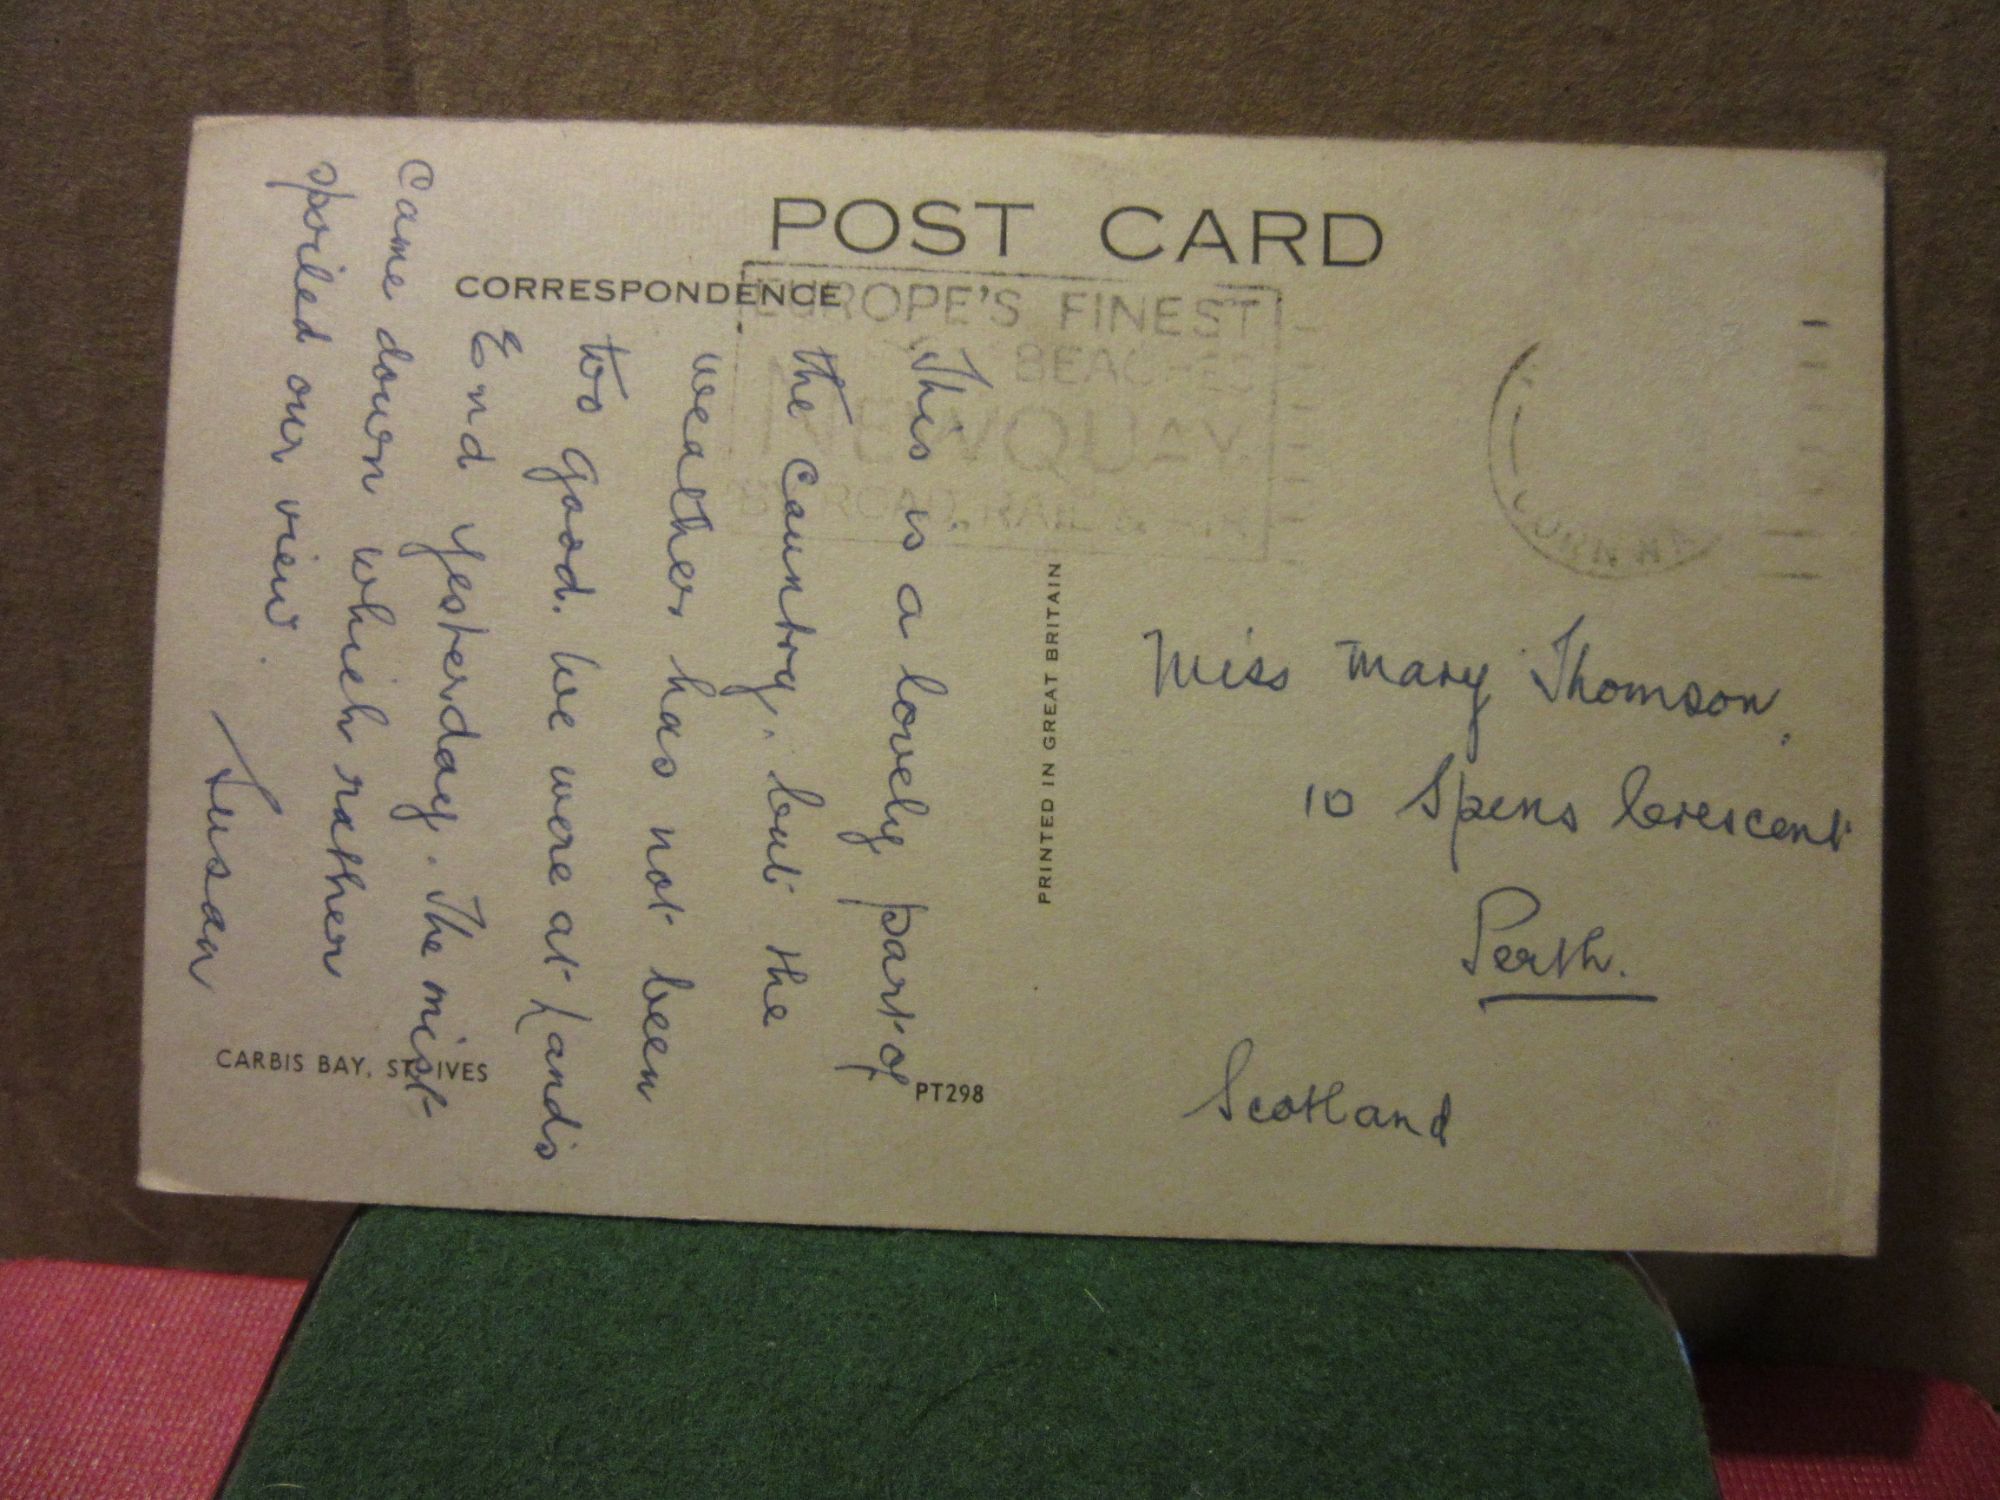 POST CARD
CORRESPONDENCE
EUROPE'S FINEST
BEACHES
NEWQUAY
BY ROAD, RAIL & AIR
CORNWA
This is a lovely part of
the country, but the
weather has not been
too good. We were at Lands
End yesterday. The mist
came down which rather
spoiled our view.
Susan
PRINTED IN GREAT BRITAIN
Miss Mary Thomson,
10 Spens Crescent
Perth.
Scotland
CARBIS BAY, ST. IVES
PT298